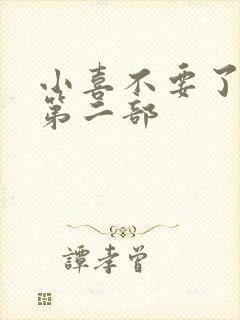 小喜不要了
第二部
譚孝曾